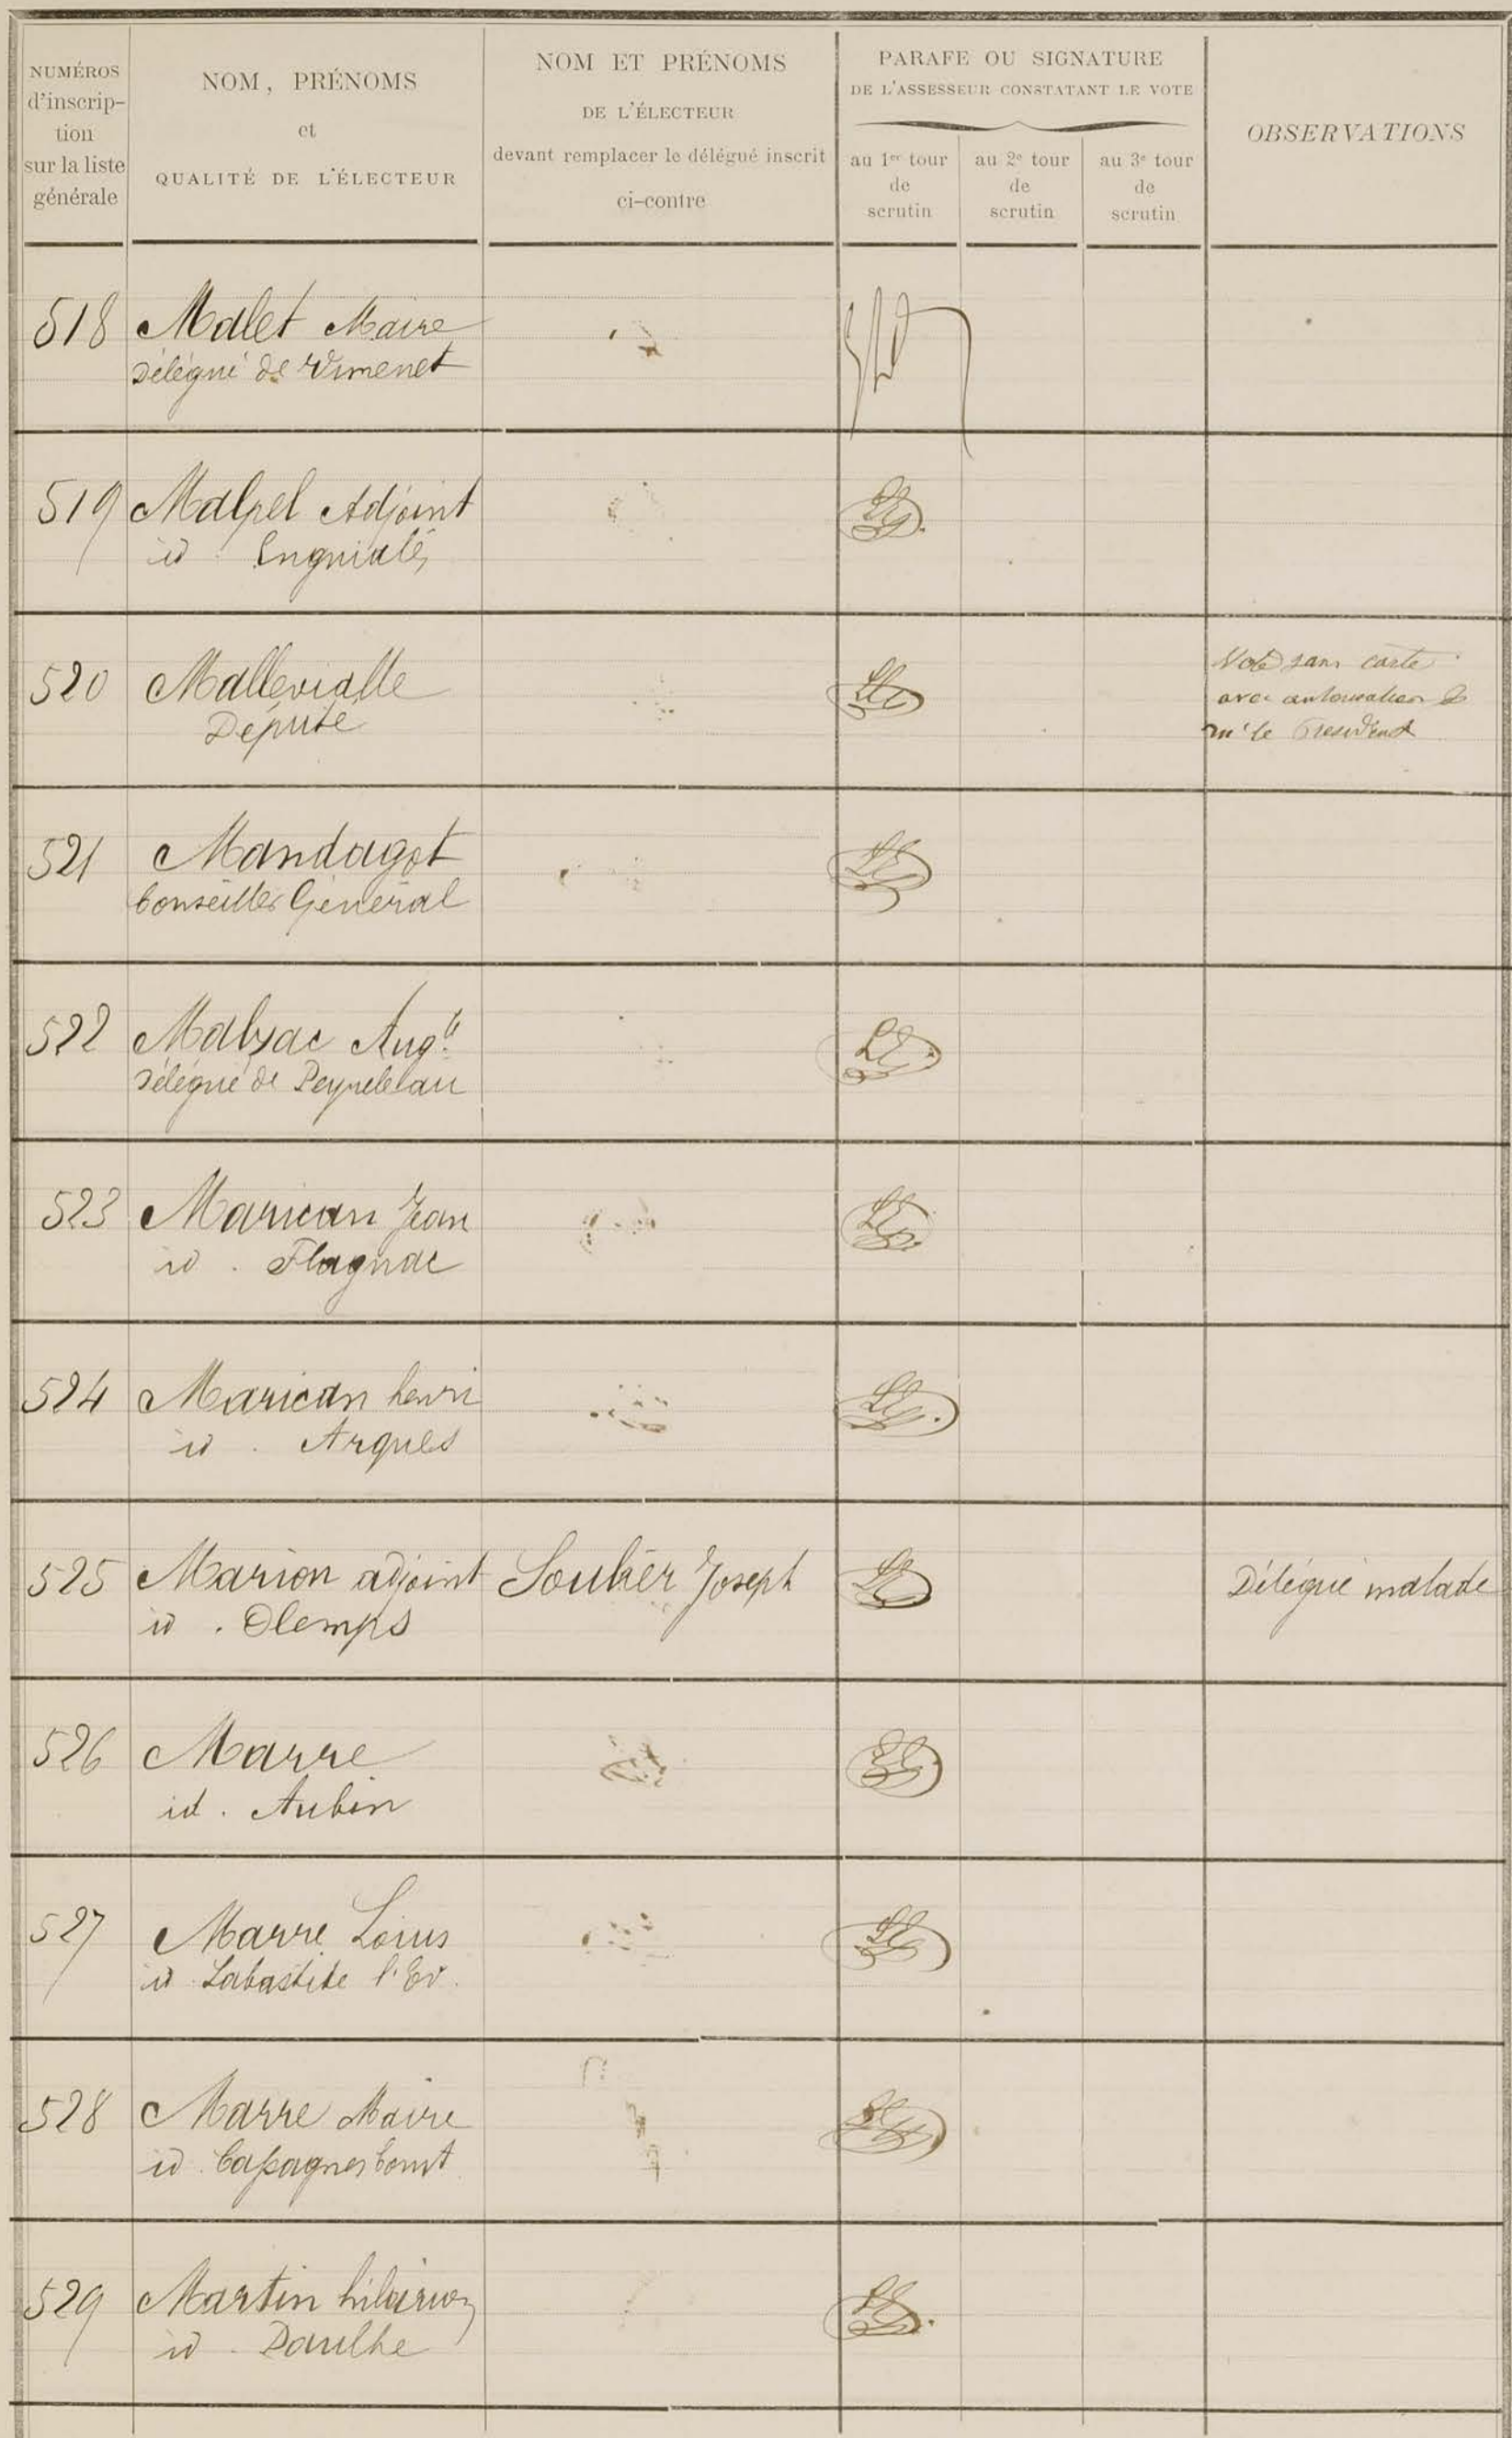 NUMÉROS
d'inscrip-
tion
sur la liste
générale
NOM, PRÉNOMS
et
QUALITÉ DE L'ÉLECTEUR
NOM ET PRÉNOMS
DE L'ÉLECTEUR
devant remplacer le délégué inscrit
ci-contre
PARAFE OU SIGNATURE
DE L'ASSESSEUR CONSTATANT LE VOTE
au 1er tour
de
scrutin
au 2e tour
de
scrutin
au 3e tour
de
scrutin
OBSERVATIONS
518 Malet Maire
Délégué de Vimenet
519 Malpel Adjoint
id Enguialès
520 Mallevialle
Député
Voté sans carte
avec autorisation de
mr le Président
521 Mandagot
Conseiller Général
522 Malzac Augte
Délégué de Peyreleau
523 Marican Jean
id. Flagnac
524 Marican henri
id. Arques
525 Marion adjoint Soulier Joseph Délégué malade
id. Olemps
526 Marre
id. Aubin
527 Marre Louis
id Labastide l'Ev.
528 Marre Maire
id. Cassagnes Comt
529 Martin hilarion
id. Paulhe